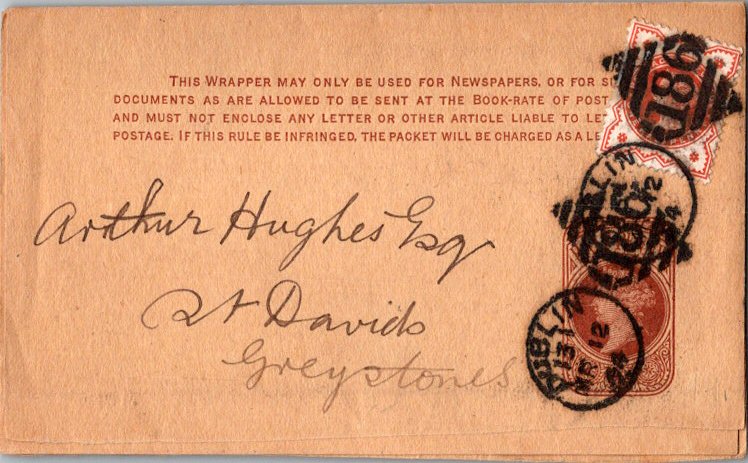 THIS WRAPPER MAY ONLY BE USED FOR NEWSPAPERS, OR FOR
DOCUMENTS AS ARE ALLOWED TO BE SENT AT THE BOOK-RATE OF POST
AND MUST NOT ENCLOSE ANY LETTER OR OTHER ARTICLE LIABLE TO
POSTAGE. IF THIS RULE BE INFRINGED, THE PACKET WILL BE CHARGED AS A
186
BLIN
12
94
186
Arthur Hughes Esq
St Davids
Greystones
DUBLIN
131
MR 12
94